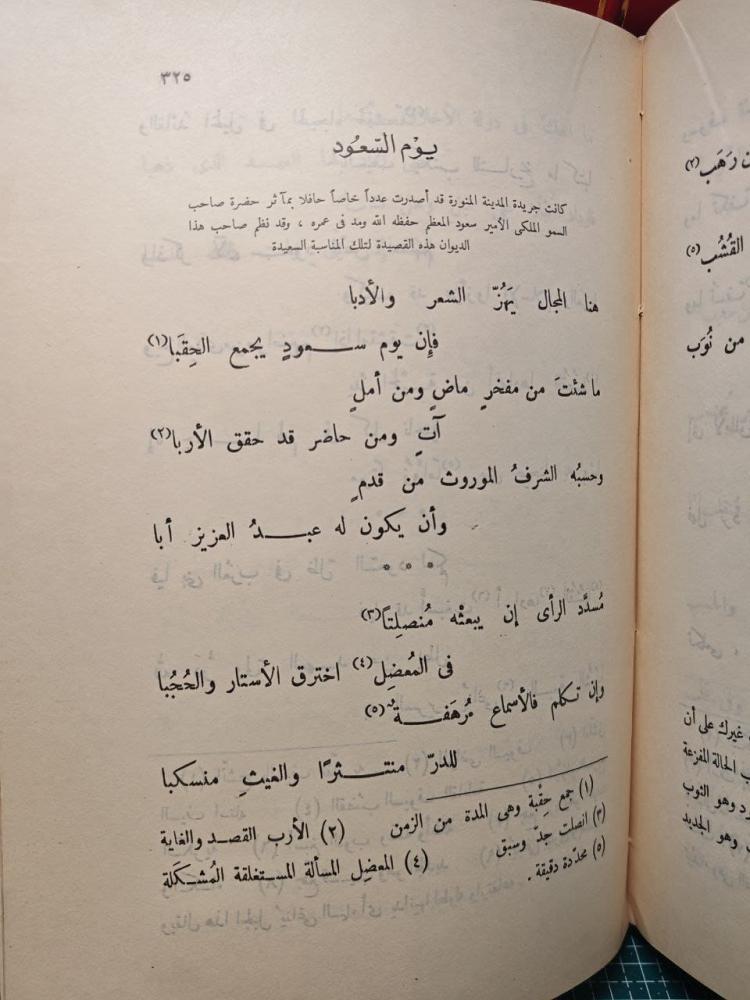 ٣٢٥
يوْم السّعُود
كانت جريدة المدينة المنورة قد أصدرت عدداً خاصاً حافلا بمآثر حضرة صاحب
السمو الملكى الأمير سعود المعظم حفظه الله ومد فى عمره ، وقد نظم صاحب هذا
الديوان هذه القصيدة لتلك المناسبة السعيدة
هنا المجال يَهُزّ الشعر والأدبا
فإن يوم سعودٍ يجمع الحِقَبا(١)
ما شئتَ من مفخرٍ ماضٍ ومن أملٍ
آتٍ ومن حاضر قد حقق الأربا(٢)
وحسبُه الشرفُ الموروث من قدمٍ
وأن يكون له عبدُ العزيز أبا
* * *
مُسدَّد الرأى إن يبعثْه مُنصلِتاً(٣)
فى المعُضِل(٤) اخترق الأستار والحُجُبا
وإن تكلم فالأسماع مُرهَفةٌ(٥)
للدرّ منتثرًا والغيثِ منسكبا
(١) جمع حِقْبة وهى المدة من الزمن (٢) الأرب القصد والغاية
(٣) انصلت جدّ وسبق (٤) المعضِل المسألة المستغلقة المُشكَلة
(٥) محدّدة دقيقة .
ن رَهَب(٢)
القُشُب(٥)
من نُوَب
غيرك على أن
ب الحالة المفزعة
رد وهو الثوب
وهو الجديد